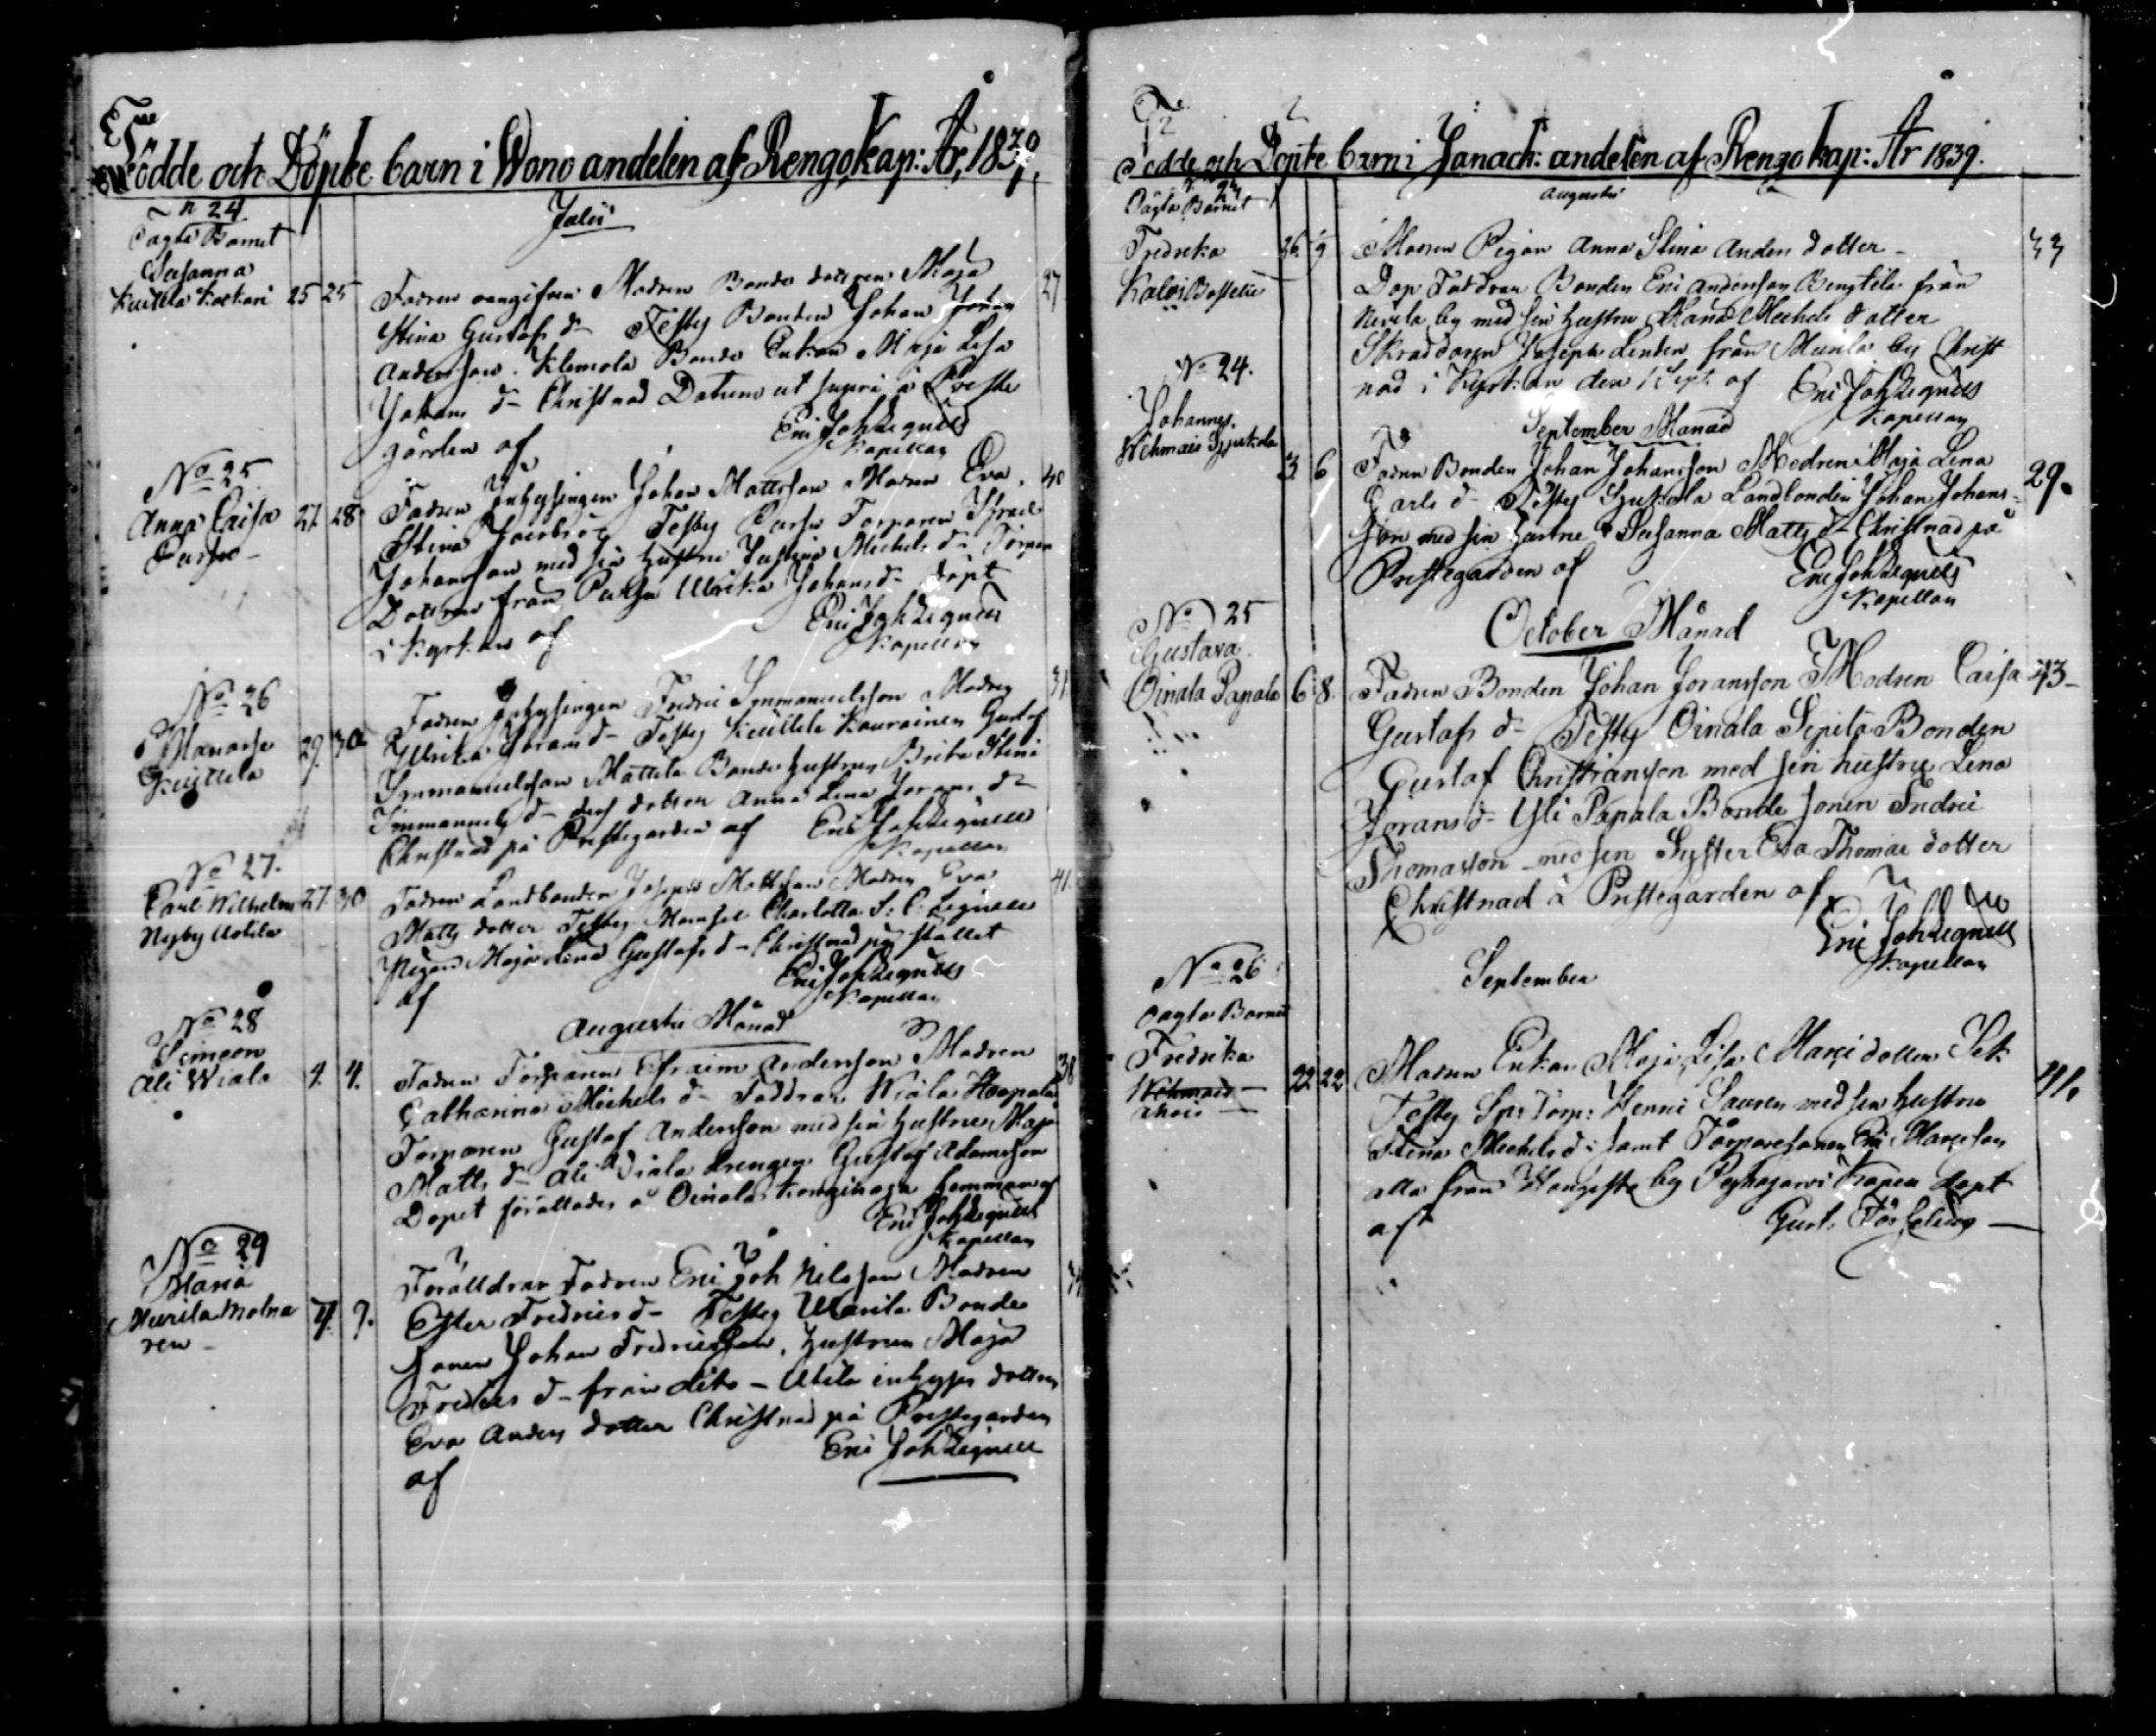 Födde och Döpte barn i Wono andelen af Rengo Kap: År, 1839.
n 24
Oägta Barnet
Susanna
Kuittila Koskari 25 25
Julii
Fadren oangifven Modren Bonde dottren Maja 27
Stina Gustafs d- Testes Bonden Johan
Andersson Klemola Bonde Enkan Maja Lisa
Johans d- Christnad Datum ut supra å Preste
gården af Eric Joh Lignell
Kapellan
No 25
Anna Caisa 27. 28
Fadren Inhysingen Johan Mattsson Modren Eva 40
Stina Jacobs d- Testes Torparen
Johansson med sin hustru Justina Michels d-
Dottren från Ulrika Johans d- döpt
i Kyrkan af Eric Joh Lignell
Kapellan
No 26
Manasse 29. 30
Kuittila
Fadren Inhysingen Fredric Immanuelsson Modren 31
Ulrika Jörans d- Testes Kuittila Kaurainen Gustaf
Immanuelsson Mattila Bonde hustrun Brita Stina
Immanuels d- dottren Anna Lena Jörans d-
Christnad på Prestegården af Eric Joh Lignell
Kapellan
No 27.
Carl Wilhelm 27 30
Nyby Uotila
Fadren Landbonden Joseph Mattsson Modren Eva 41
Matts dotter Testes Mamsel Charlotta S: C: Lignell
Pigan Maja Lena Gustafs d- Christnad på stället
af Eric Joh Lignell
Kapellan
Augusti Månad
No 28
Simeon
Ali Wiala 4. 4.
Fadren Torparen Efraim Andersson Modren 38
Catharina Michels d- Faddrar Wiala Haapala
Torparen Gustaf Andersson med sin hustru Maja
Matts d- Ali Wiala drengen Gustaf Adamsson
Dopet förättades å Oinala hemman af
Eric Joh Lignell
Kapellan
No 29
Maria
7. 9.
Föräldrar Fadren Eric Joh Nilsson Modren
Ester Fredrics d- Testes Bonde
sonen Johan Fredricsson, hustrun Maja
Fredrics d- från dito - Utila inhyses dottren
Eva Anders dotter Christnad på Prestegården
af Eric Joh Lignell
Födde och Döpte barn i Janack: andelen af Rengo Kap: År 1839.
Augusti
Oägta Barnet
Fredrika 26. 1/9
Modren Pigan Anna Stina Anders dotter - 33
Dop Faddrar Bonden Eric Andersson Bengtilä från
by med sin hustru Maria Michels dotter
Skräddaren Joseph Linden från by Christ
nad i Kyrkan den 1 Sept. af Eric Joh Lignell
Kapellan
September Månad
No 24.
Johannes.
3. 6
Fadren Bonden Johan Johansson Modren Maja Lena 29.
Carls d- Testes Landbonden Johan Johans=
son med sin hustru Susanna Matts d- Christnad på
Prestegården af Eric Joh Lignell
Kapellan
October Månad
No 25
Gustava
Oinala Papala 6 8.
Fadren Bonden Johan Joransson Modren Caisa 43-
Gustafs d- Testes Oinala Sipilä Bonden
Gustaf Christiansson med sin hustru Lena
Jörans d- Yli Papala Bonde sonen Fredric
Thomasson med sin Syster Eva Thomas dotter
Christnad å Prestegården af
Eric Joh Lignell
Kapellan
September
No 26
Oägta Barnet
Fredrika 22 22
Modren Enkan Maja Lisa Marci dotter 41.
Testes Sp: Torp: Henric Sauren med sin hustru
Stina Michels d: samt Torparesonen Eric Marcsson
alla från by döpt
af Gust. Forselius -